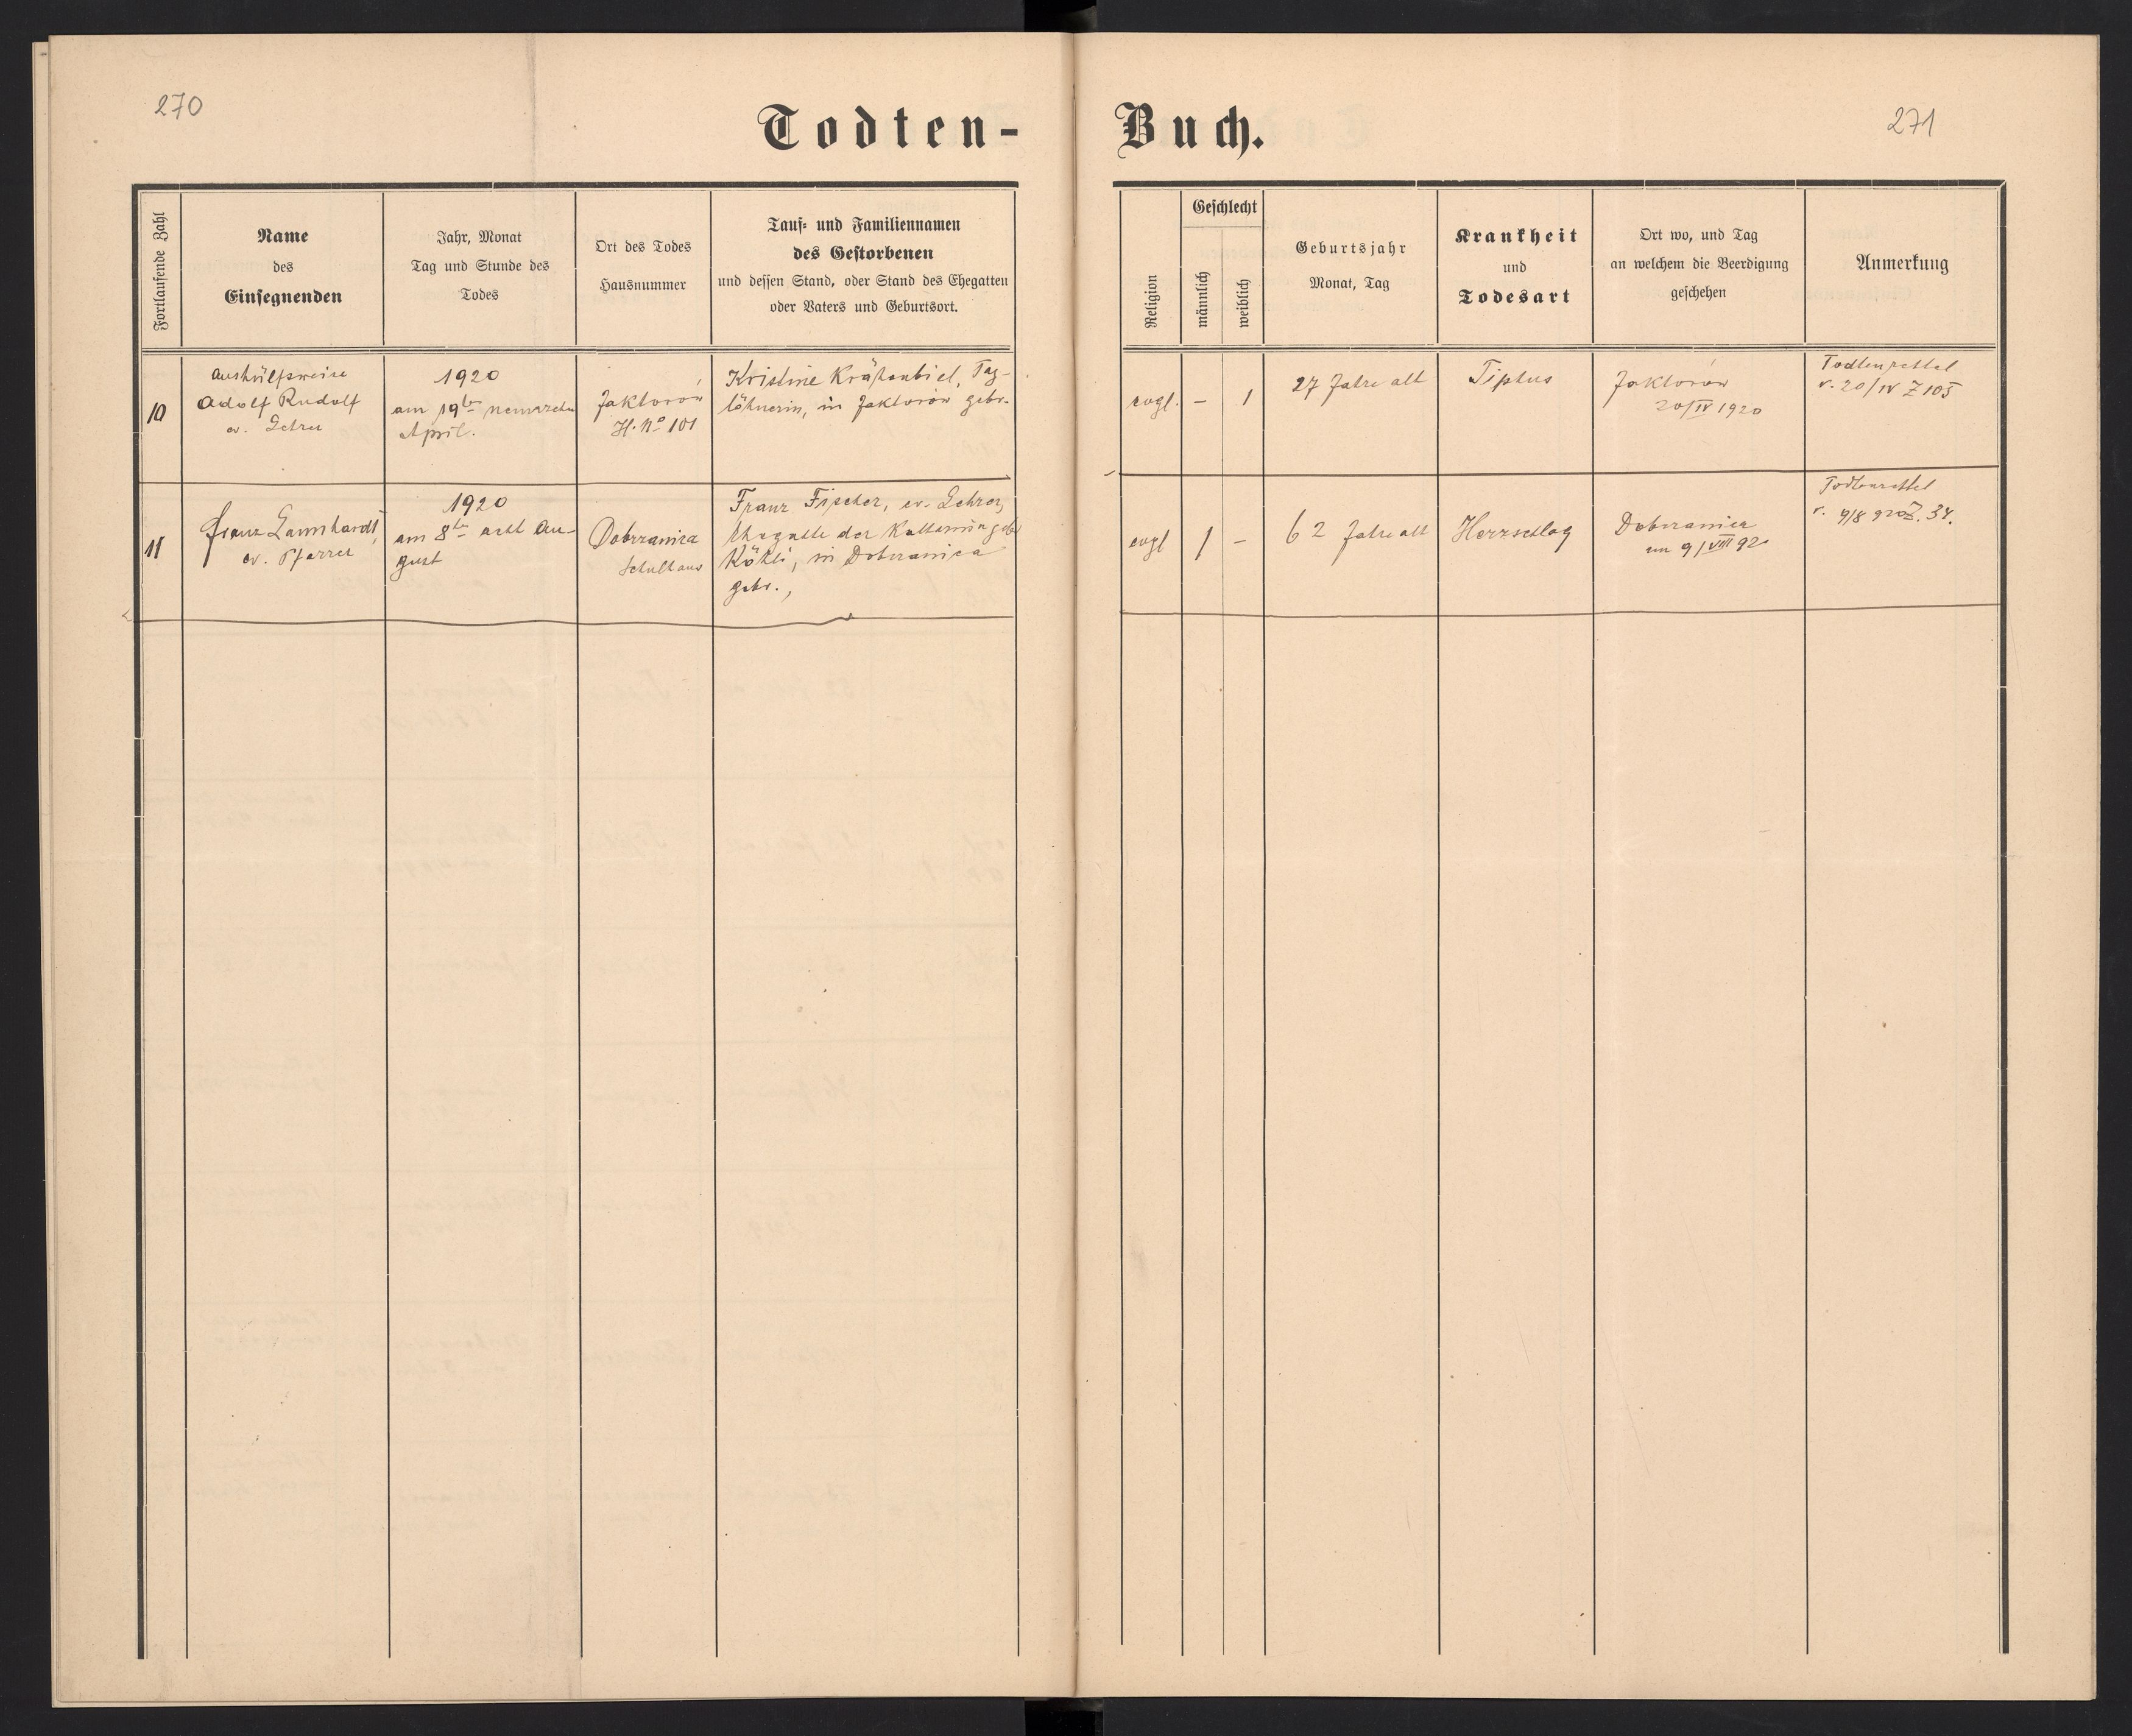 270
271
Todten-
Buch.
Fortlaufende Zahl
Name
des
Einsegnenden
Jahr, Monat
Tag und Stunde des
Todes
Ort des Todes
Hausnummer
Tauf- und Familiennamen
des Gestorbenen
und dessen Stand, oder Stand des Ehegatten
oder Vaters und Geburtsort.
Religion
Geschlecht
männlich
weiblich
Geburtsjahr
Monat, Tag
Krankheit
und
Todesart
Ort wo, und Tag
an welchem die Beerdigung
geschehen
Anmerkung
10
Aushülfsweise
Adolf Rudolf
ev. Lehrer
1920
am 19ten neunzehn
April.
Jaktorów
H. No 101
Kristine Krähenbiel, Tag-
löhnerin, in Jaktorów gebr.
evgl.
–
1
27 Jahre alt
Tiphus
Jaktorów
20/IV 1920
Todtenzettel
v. 20/IV Z 105
11
Franz Lamshardt,
ev. Pfarrer
1920
am 8ten acht Au-
gust
Dobrzanica
Schulhaus
Franz Fischer, ev. Lehrer,
der Katharina geb.
in Dobrzanica
gebr.,
evgl
1
–
62 Jahre alt
Herzschlag
Dobrzanica
am 9/VIII 92
Todtenzettel
v. 9/8 920 Z. 34.